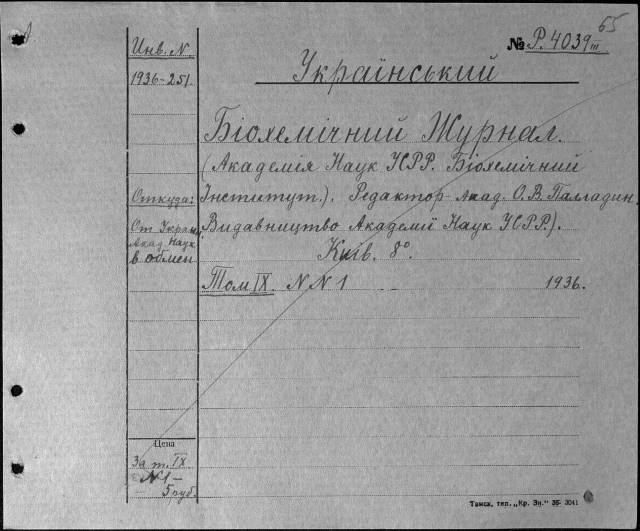 65
№ Р. 4039 III
Инв. N.
1936-251
Український
Біохемічний Журнал.
(Академія Наук УСРР. Біохемічний
Откуда:
Інститут.). Редактор акад. О.В. Палладин.
От Украин.
Видавництво Академії Наук УСРР.).
Акад. Наук
в обмен
Київ. 8°.
Том IX. N N 1 1936.
Цена
За т. IX
N 1 –
5 руб.
Томск, тип. „Кр. Зн." 35- 3041